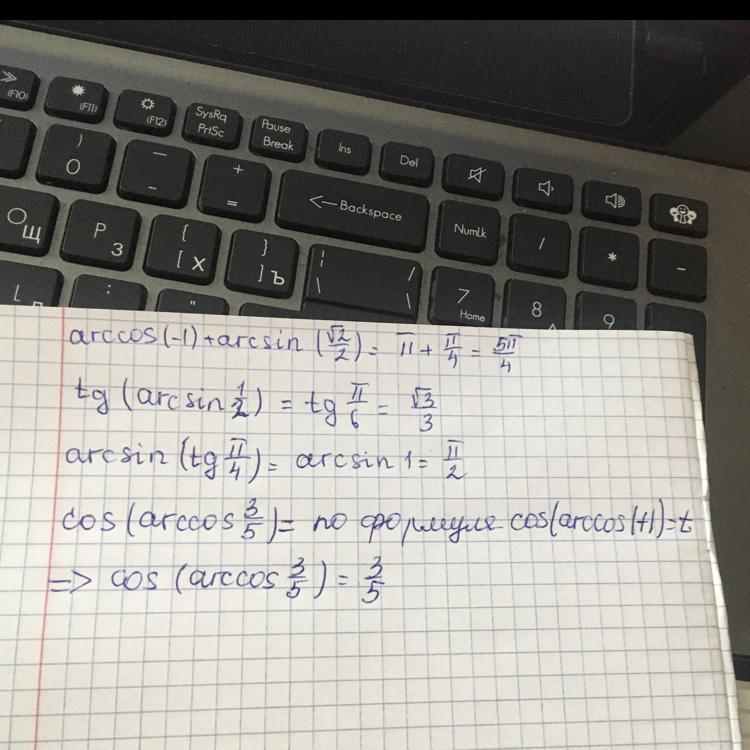 (F10)
(F11)
(F12)
SysRq PrtSc
Pause Break
Ins
Del
) 0
— -
+ =
← Backspace
NumLk
/
*
-
O Щ
P З
{ [ Х
} ] Ъ
¦ / \ \
7 Home
8
9
L
: "
arccos(-1)+arcsin (√2/2) = π + π/4 = 5π/4
tg (arcsin 1/2) = tg π/6 = √3/3
arcsin (tg π/4) = arcsin 1 = π/2
cos (arccos 3/5) = по формуле cos(arccos(t)=t
=> cos (arccos 3/5) = 3/5